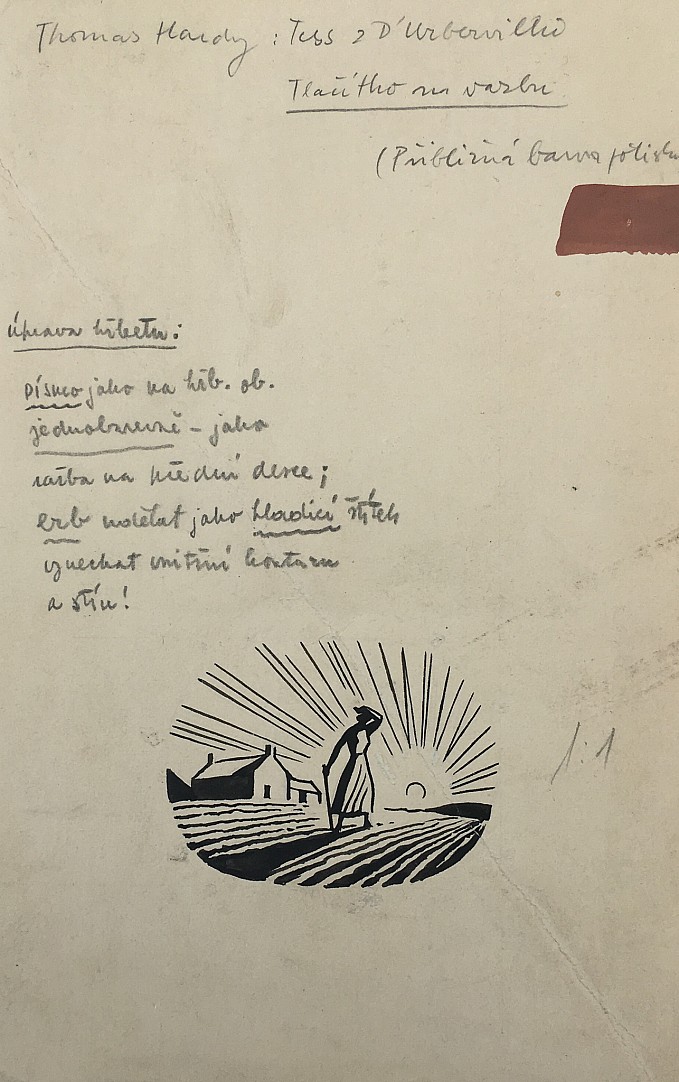 Thomas Hardy: Tess z D'Urbervillů
Tlačítko na vazbu
(Přibližná barva potisku
Úprava hřbetu:
písmo jako na hřb. ob.
jednobarevně – jako
ražba na přední desce;
erb udělat jako hladící štítek
vynechat vnitřní konturu
a stín!
1:1